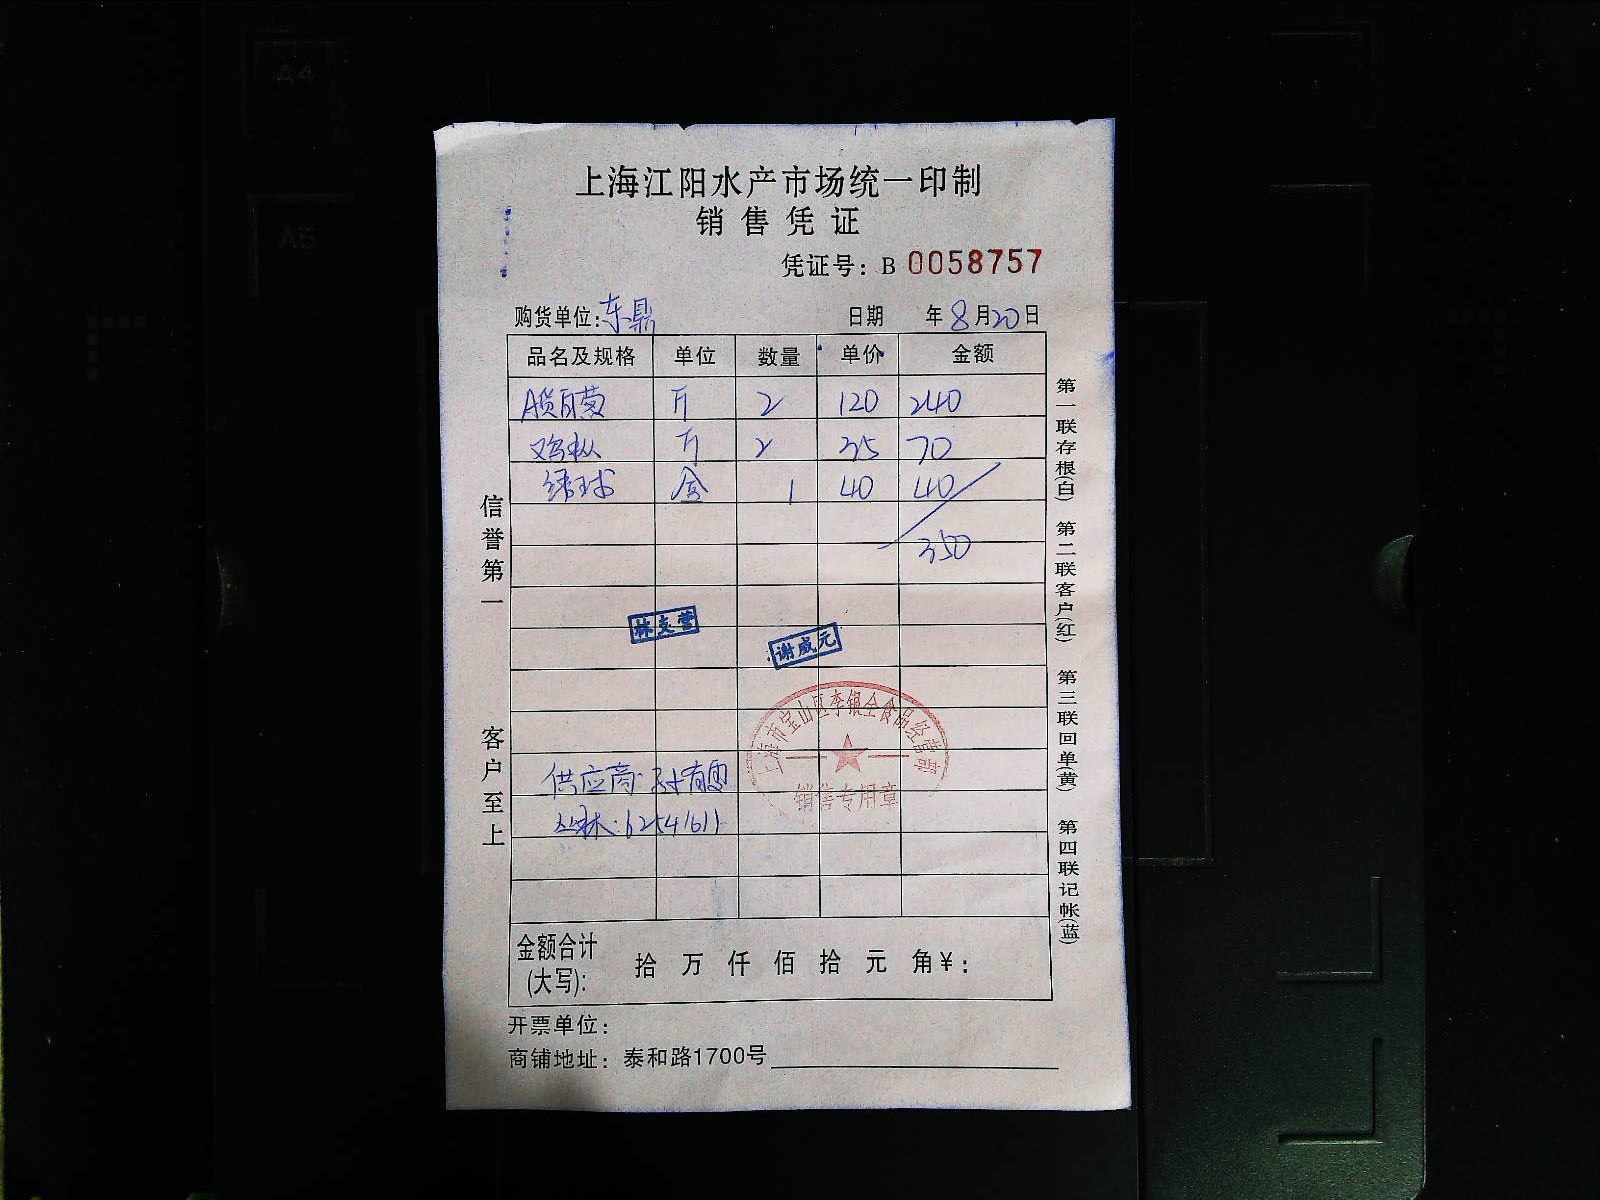 A4
A5
上海江阳水产市场统一印制
销售凭证
凭证号：B 0058757
购货单位：东鼎 日期 年8月20日
品名及规格 单位 数量 单价 金额
A货百菊 斤 2 120 240
鸡枞 斤 2 35 70
绣球 盒 1 40 40
350
林支营
谢威元
上海市宝山区李银全食品经营部
销售专用章
供应商：孙有
丛林：62541611
金额合计(大写)： 拾 万 仟 佰 拾 元 角¥：
开票单位：
商铺地址：泰和路1700号
信誉第一
客户至上
第一联存根(白)
第二联客户(红)
第三联回单(黄)
第四联记帐(蓝)